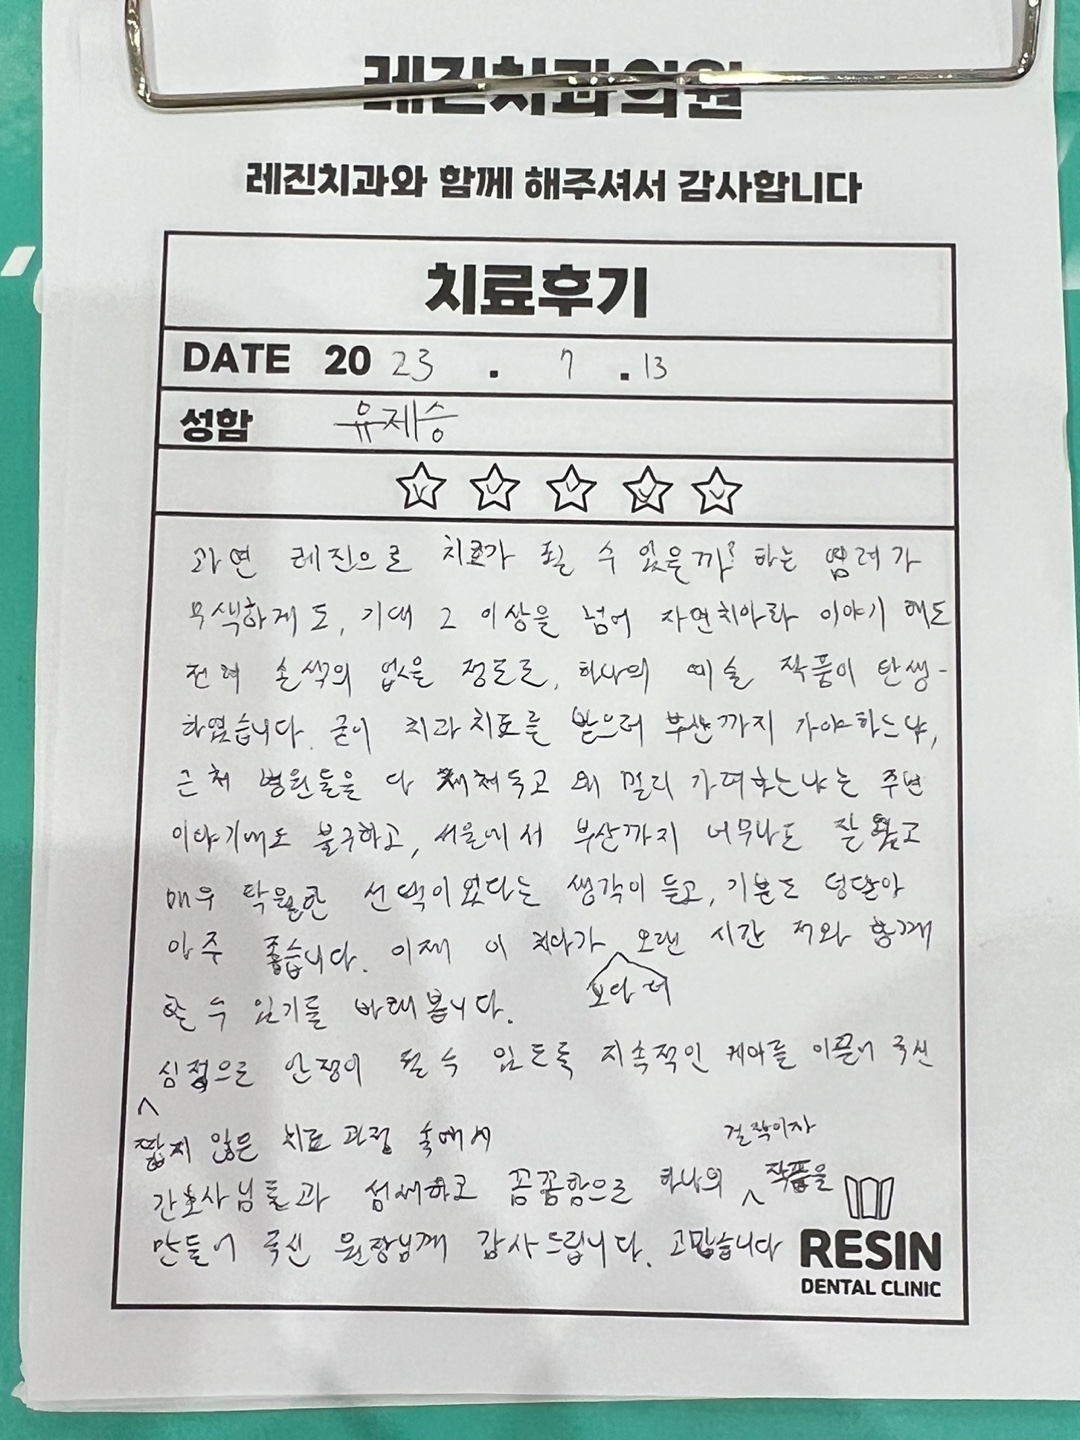 레진치과의원
레진치과와 함께 해주셔서 감사합니다
치료후기
DATE 20 23 . 7 . 13
성함 유제승
과연 레진으로 치료가 될 수 있을까? 하는 염려가
무색하게도, 기대 그 이상을 넘어 자연치아라 이야기 해도
전혀 손색의 없을 정도로, 하나의 예술 작품이 탄생-
하였습니다. 굳이 치과치료를 받으러 부산까지 가야하느냐,
근처 병원들을 다 제쳐두고 왜 멀리 가려하는냐는 주변
이야기에도 불구하고, 서울에서 부산까지 너무나도 잘 왔고
매우 탁월한 선택이였다는 생각이 들고, 기분도 덩달아
아주 좋습니다. 이제 이 치아가 오랜 시간 저와 함께
보다 더
할 수 있기를 바래봅니다.
심적으로 안정이 될 수 있도록 지속적인 케어를 이끌어 주신
짧지 않은 치료 과정 속에서
걸작이자
간호사님들과 섬세하고 꼼꼼함으로 하나의 작품을
만들어 주신 원장님께 감사드립니다. 고맙습니다
RESIN
DENTAL CLINIC